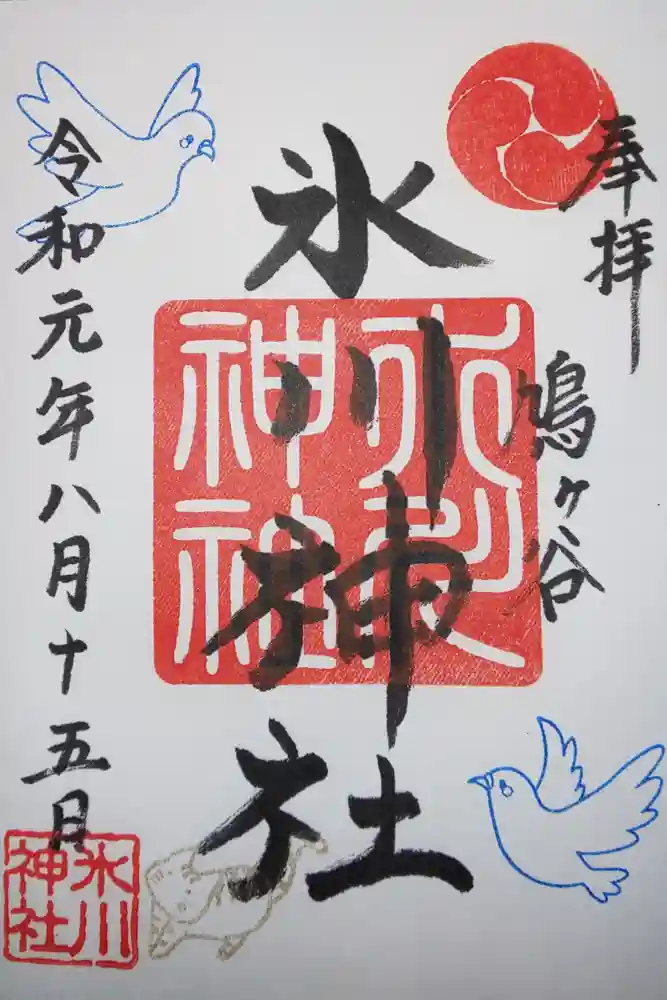 奉拝
鳩ヶ谷
氷川神社
令和元年八月十五日
氷川
神社